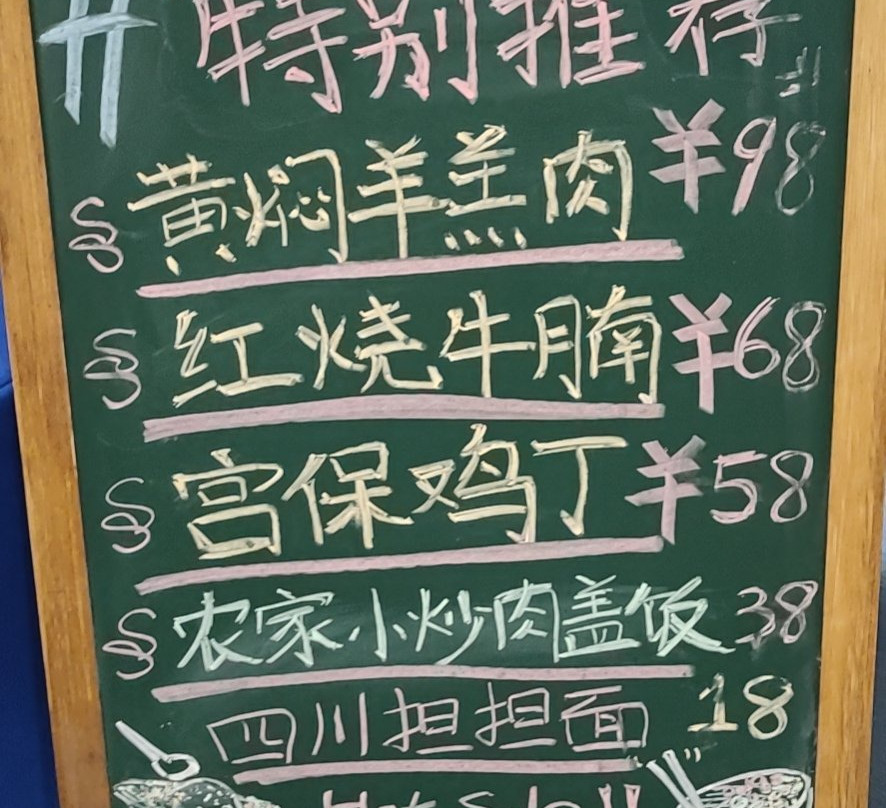 # 特别推荐
黄焖羊羔肉 ¥98
红烧牛腩 ¥68
宫保鸡丁 ¥58
农家小炒肉盖饭 38
四川担担面 18